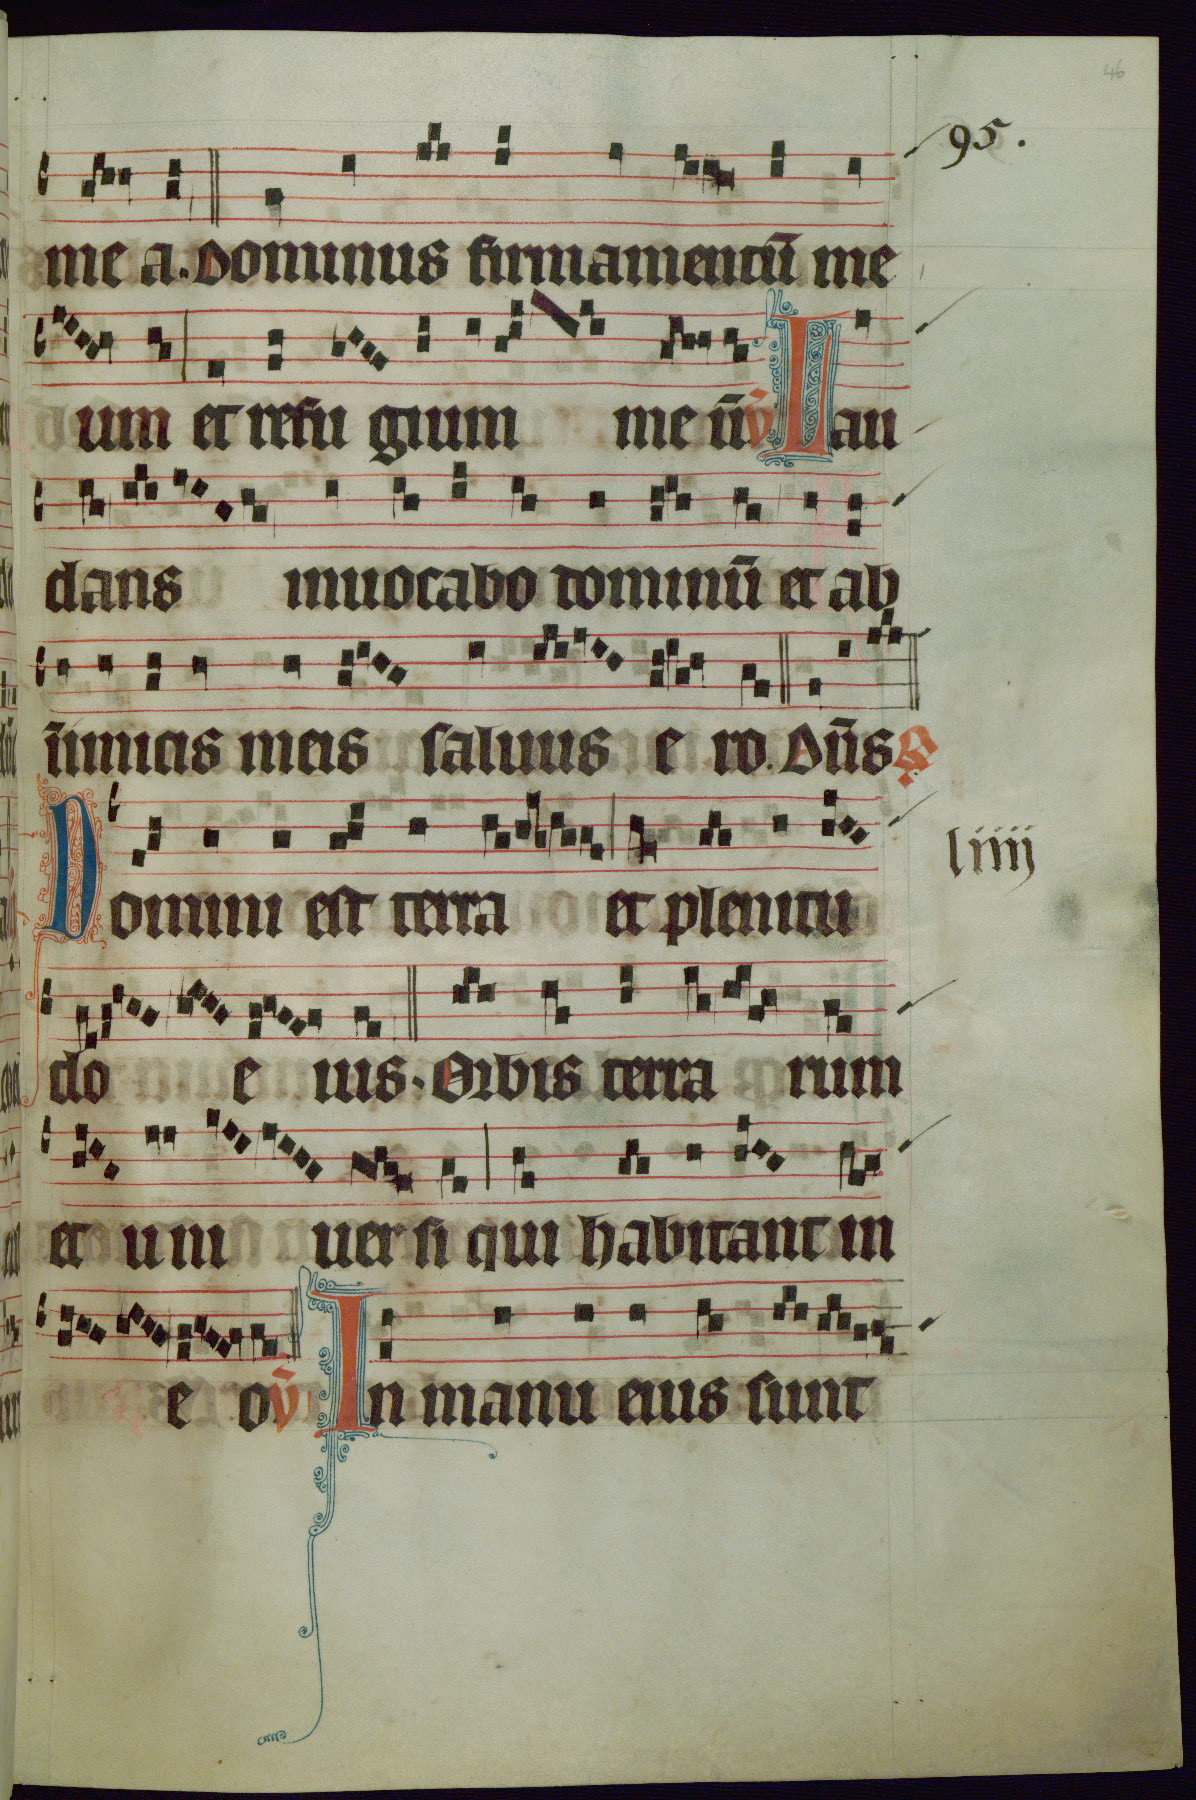 46
95.
me a. Dominus firmamentū me
um et refu gium me ū V̄ Lau
dans inuocabo dominū et ab
inimicis meis saluus e ro. Dn̄s R
Domini est terra et plenitu
liiij
do e ius. Orbis terra rum
et uni uer si qui habitant in
e o V̄ In manu eius sunt